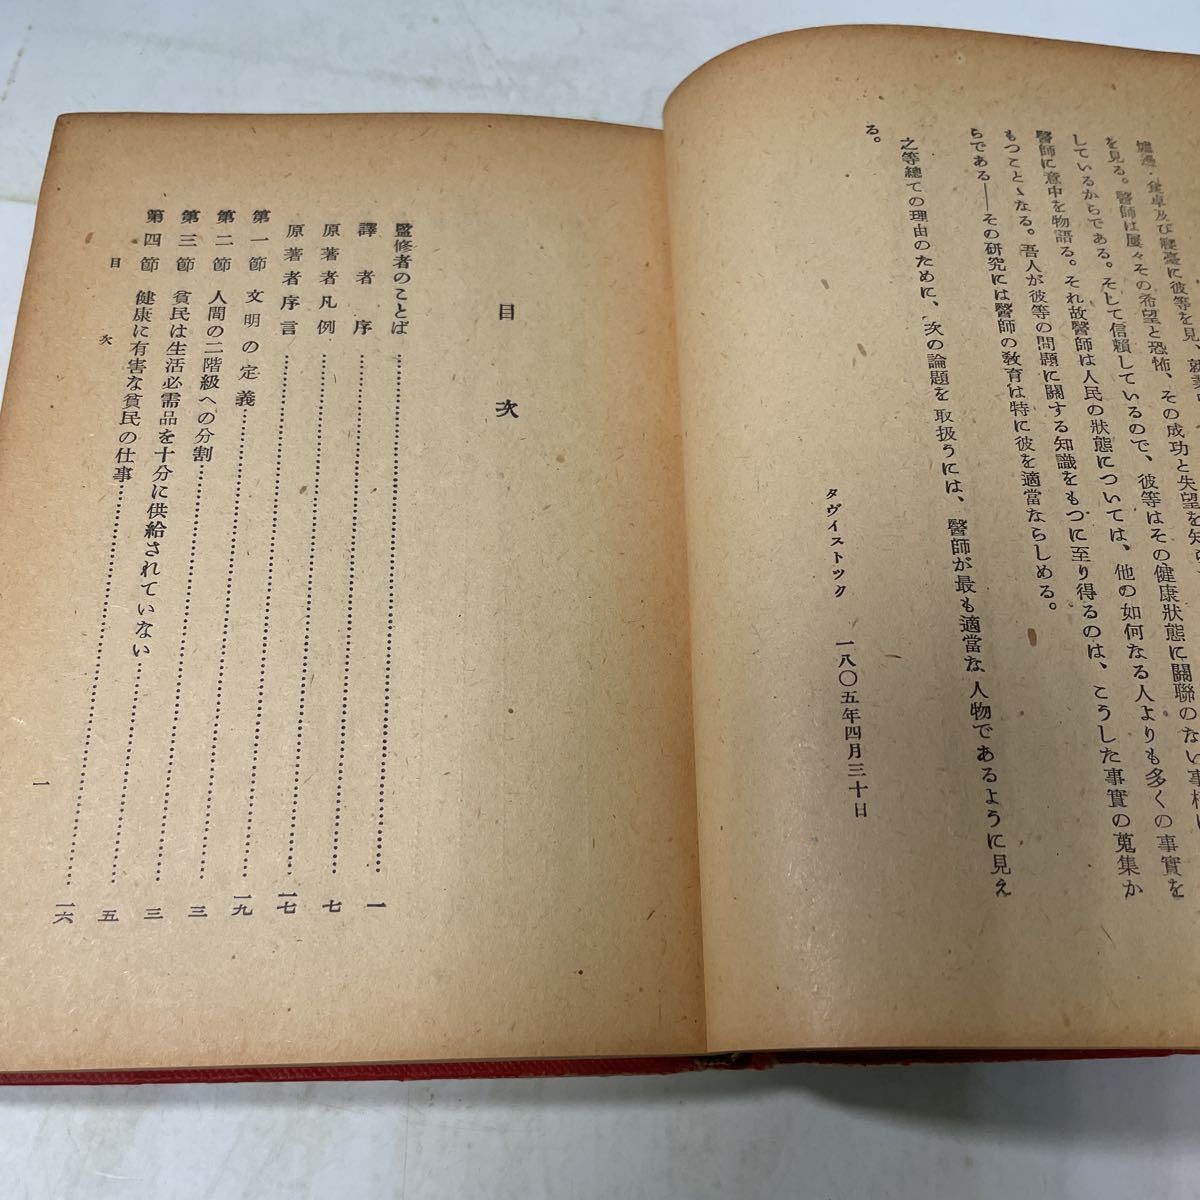 爐邊・食卓及び寢臺に彼等を見、
を見る。醫師は屢々その希望と恐怖、その成功と失望を知り、
しているからである。そして信賴しているので、彼等はその健康狀態に關聯のない事柄に
醫師に意中を物語る。それ故醫師は人民の狀態については、他の如何なる人よりも多くの事實を
もつことゝなる。吾人が彼等の問題に關する知識をもつに至り得るのは、こうした事實の蒐集か
らである――その硏究には醫師の敎育は特に彼を適當ならしめる。
之等總ての理由のために、次の論題を取扱うには、醫師が最も適當な人物であるように見え
る。
タヴイストツク 一八〇五年四月三十日
目次
監修者のことば……一
譯者序……七
原著者凡例……七
原著者序言……一九
第一節 文明の定義……三
第二節 人間の二階級への分割……三
第三節 貧民は生活必需品を十分に供給されていない……五
第四節 健康に有害な貧民の仕事……一六
目次
一